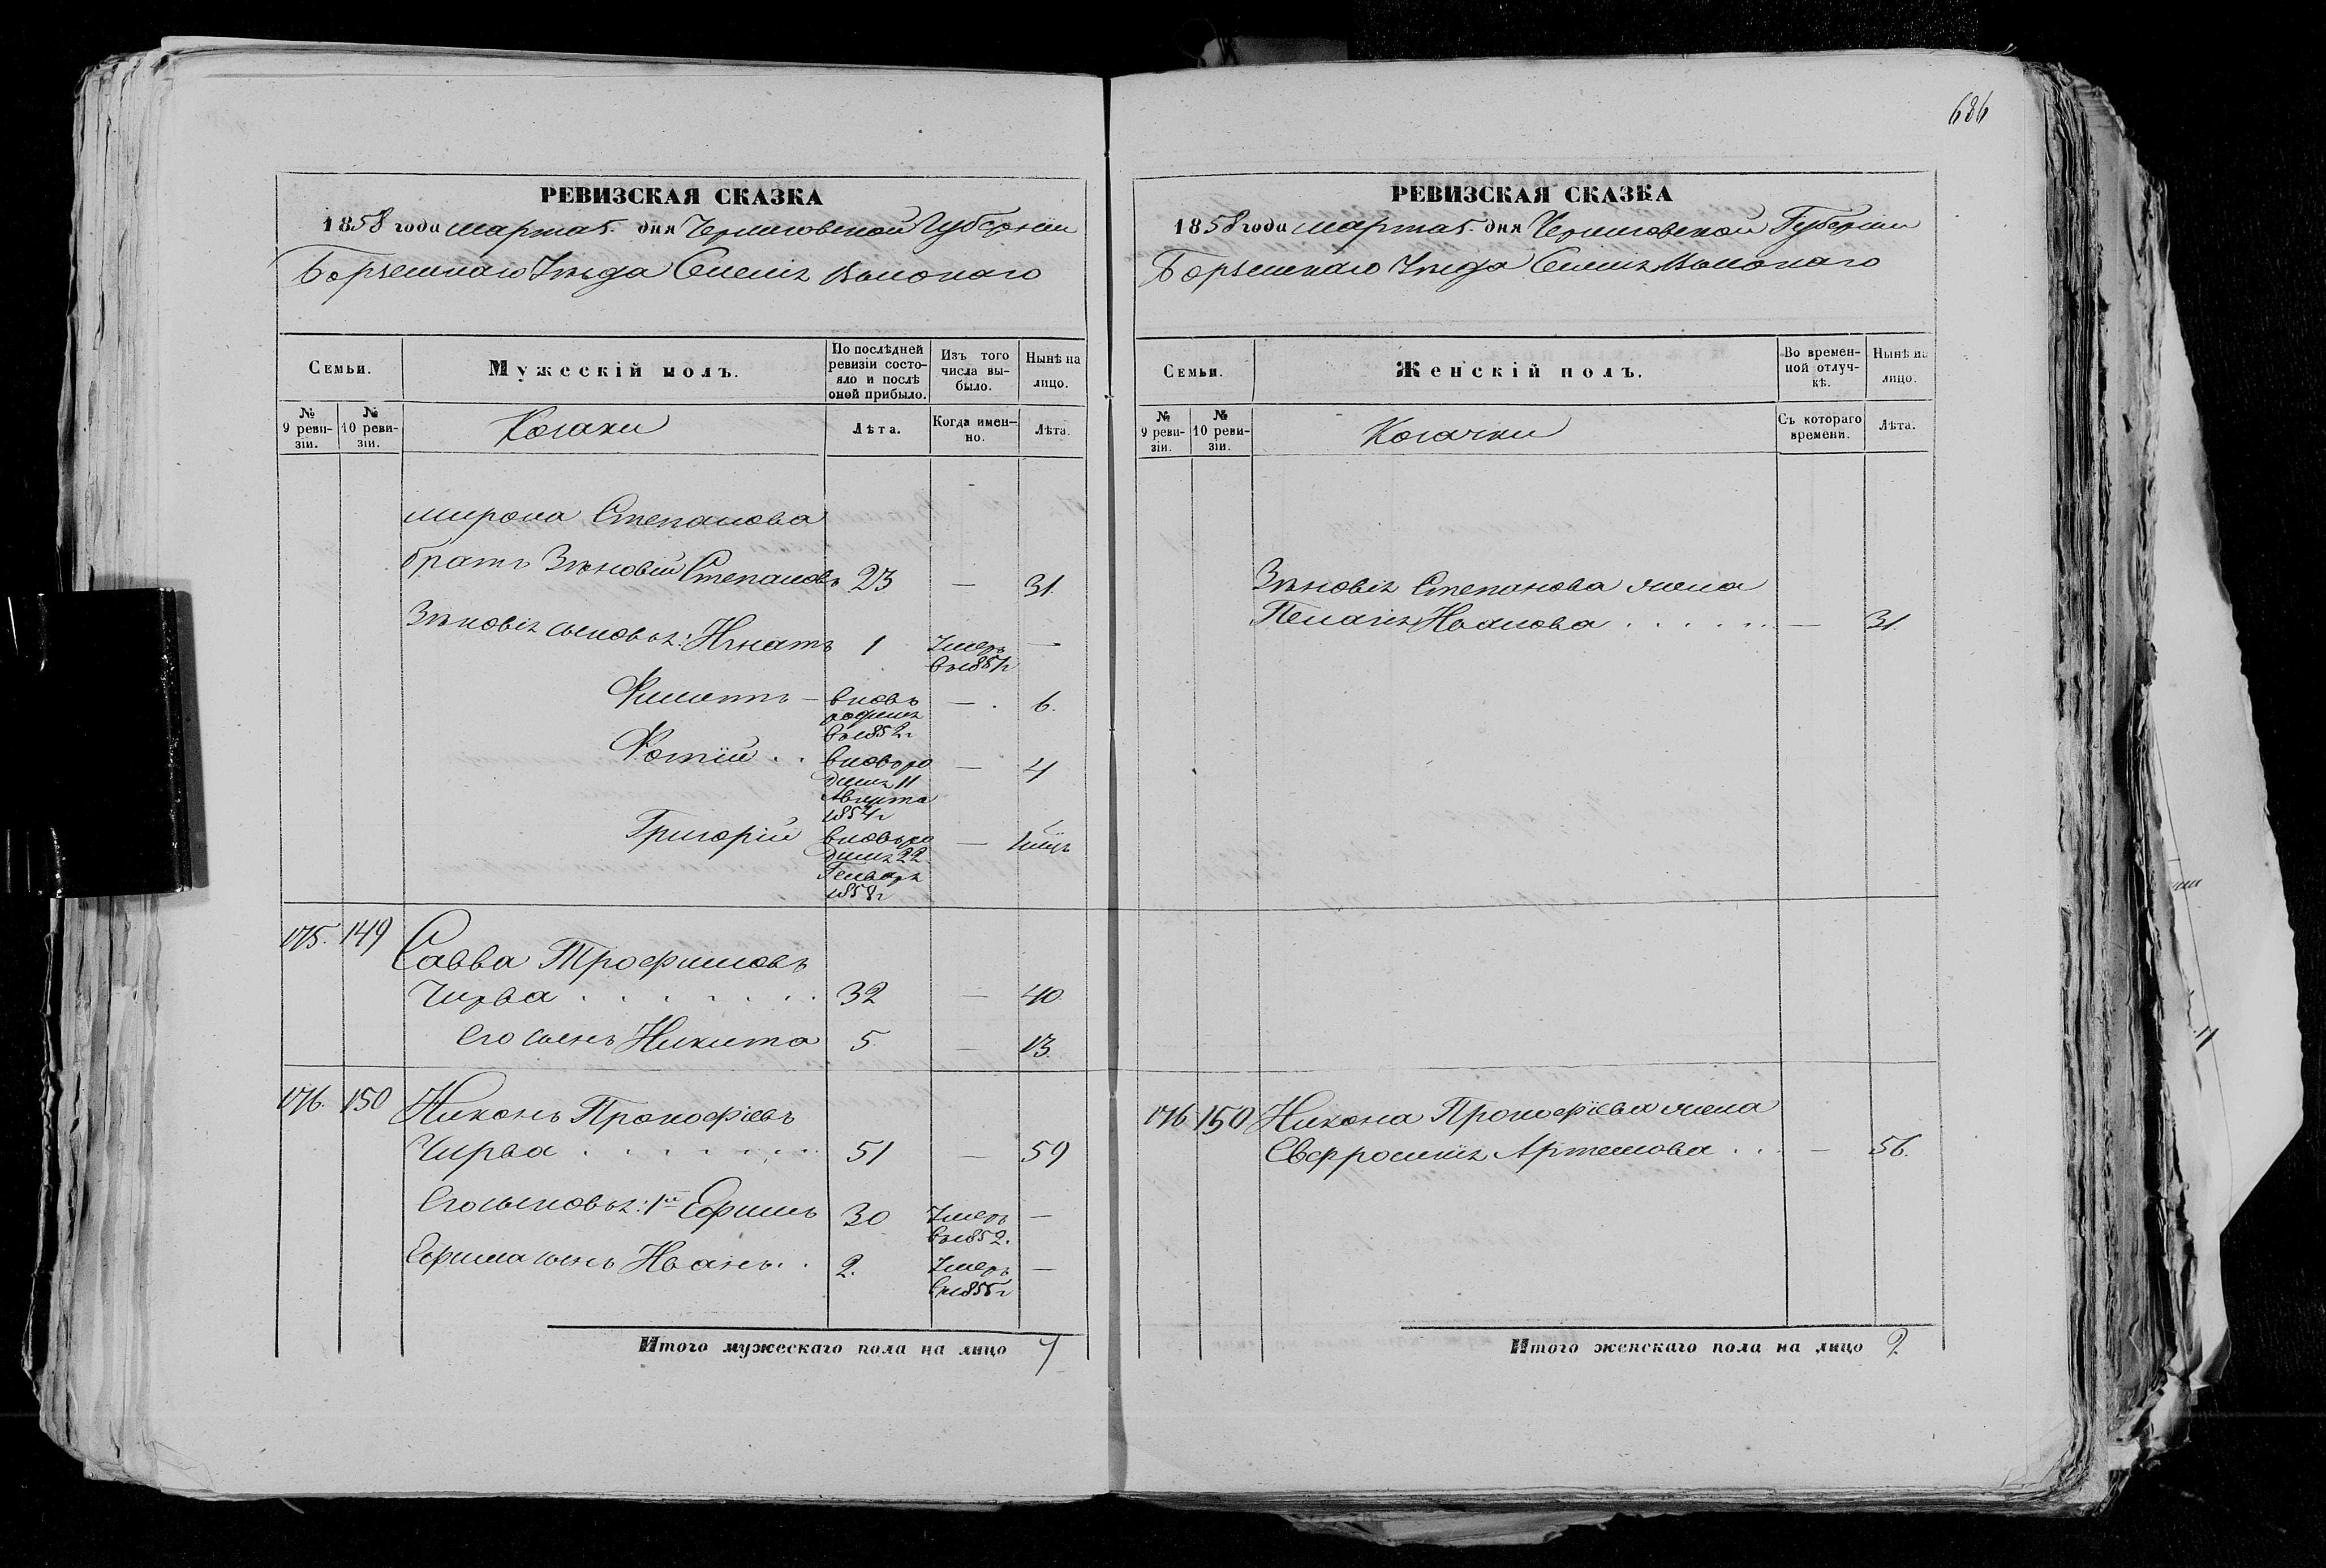 686
РЕВИЗСКАЯ СКАЗКА
1858 года марта 5. дня Черниговской Губерніи
Борзенскаго Уѣзда Селенія
Семьи.
Мужескій полъ.
По послѣдней ревизіи состояло и послѣ оной прибыло.
Изъ того числа выбыло.
Нынѣ на лицо.
№ 9 ревизіи.
№ 10 ревизіи.
Козаки
Лѣта.
Когда именно.
Лѣта.
Мирона Степанова
братъ Зѣновій Степановъ 23 — 31.
Зѣновія сыновья: Игнатъ 1 Умеръ —
въ 1857г
Филиппъ — вновь — . 6.
родился
въ 1852г
Фотій . . вновь ро — 4
дился 11
Августа
1854г
Григорій вновь ро —
дился 22
Генваря
1858г
175. 149 Савва Трофимовъ
Чирва . . . . . . . 32 — 40
Его сынъ Никита 5. — 13.
176. 150 Никонъ Прокофіевъ
Чирва . . . . . . . 51 — 59
Его сыновья: 1й Ефимъ 30 Умеръ —
въ 1852.
Ефима сынъ Иванъ. . 2. Умеръ —
въ 1855г
Итого мужескаго пола на лицо 7
РЕВИЗСКАЯ СКАЗКА
1858 года марта 5. дня Черниговской Губерніи
Борзенскаго Уѣзда Селенія
Семьи.
Женскій полъ.
Во временной отлучкѣ.
Нынѣ на лицо.
№ 9 ревизіи.
№ 10 ревизіи.
Козачки
Съ котораго времени.
Лѣта.
Зѣновія Степанова жена
Пелагія Иванова . . . . . . — 31.
176 150 Никона Прокофіева жена
Евфросинія Артемова . . . — 56.
Итого женскаго пола на лицо 2